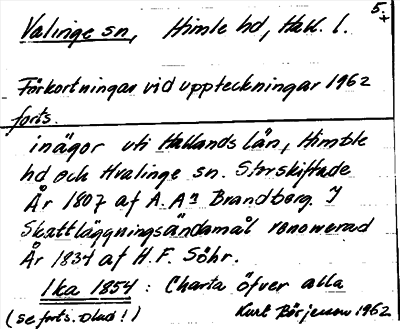 5.
Valinge sn, Himle hd, Hall. l.
Förkortningar vid uppteckningar 1962
forts.
inägor uti Hallands län, Himble
hd och Hvalinge sn. Storskiftade
År 1807 af A. An Brandberg. I
Skattläggningsändamål renoverad
År 1834 af H. F. Söhr.
Ika 1854 : Charta öfver alla
(se forts. blad!) Kurt Börjesson 1962